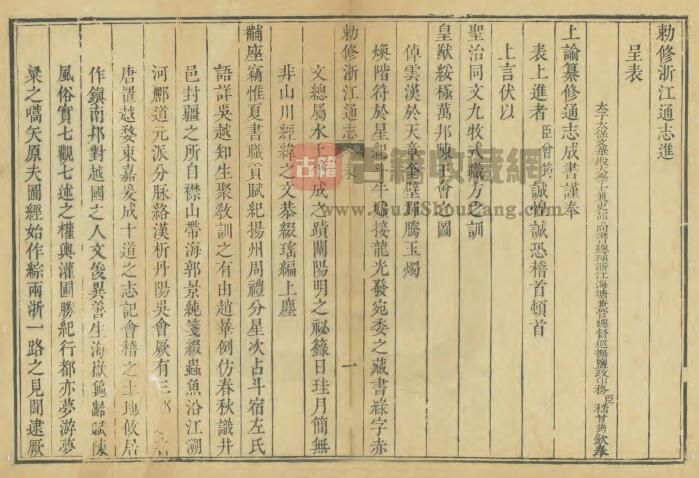 勅修浙江通志進
呈表
太子太保文華殿大學士兼吏部尚書總理浙江海塘兼管總督巡撫鹽政印務臣嵇曾筠欽奉
上諭纂修通志成書謹奉
表上進者臣曾筠誠惶誠恐稽首頓首
上言伏以
聖治同文九牧式職方之訓
皇猷綏極萬邦陳王會之圖
倬雲漢於天章奎璧輝騰玉燭
煥階符於星紀斗牛墟接龍光發宛委之藏書綠字赤
勅修浙江通志
表
一
文總屬水土平成之蹟闡陽明之祕籙日珪月簡無
非山川經緯之文恭綴瑤編上塵
黼座竊惟夏書職貢賦紀揚州周禮分星次占斗宿左氏
語詳吳越知生聚敎訓之有由趙曄例仿春秋識井
邑封疆之所自襟山帶海郭景純箋綴蟲魚沿江溯
河酈道元派分脉絡漢析丹陽吳會厥有三
唐置越婺東嘉爰成十道之志記會稽之土地攸居
作鎮南邦對越國之人文俊異善生海嶽龜齡賦陳
風俗實七觀七述之權輿灌圃勝紀行都亦夢游夢
粱之嚆矢原夫圖經始作綜兩浙一路之見聞建厥
古籍收藏網
www.GuJiShouCang.com